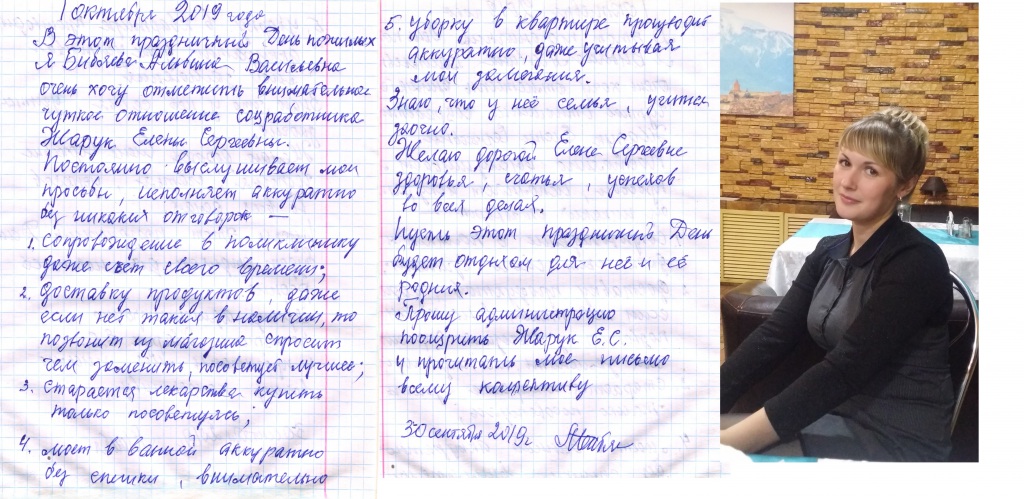 1 октября 2019 года
В этот праздничный День пожилых
я Бибяева Альвина Васильевна
очень хочу отметить внимательное
чуткое отношение соцработника
Жарук Елены Сергеевны.
Постоянно выслушивает мои
просьбы, исполняет аккуратно
без никаких отговорок —
1. Сопровождение в поликлинику
даже счет своего времени;
2. Доставку продуктов, даже
если нет таких в наличии, то
позвонит из магазина спросит
чем заменить, посоветует лучшее;
3. Старается лекарства купить
только посоветуясь;
4. моет в ванной аккуратно
без спешки, внимательно
5. уборку в квартире проиводит
аккуратно, даже учитывая
мои замечания.
Знаю, что у неё семья, учится
заочно.
Желаю дорогой Елене Сергеевне
здоровья, счатья, успехов
во всех делах.
Пусть этот праздничный День
будет отдыхом для неё и её
родных.
Прошу администрацию
поощрить Жарук Е.С.
и прочитать мое письмо
всему коллективу
30 сентября 2019г